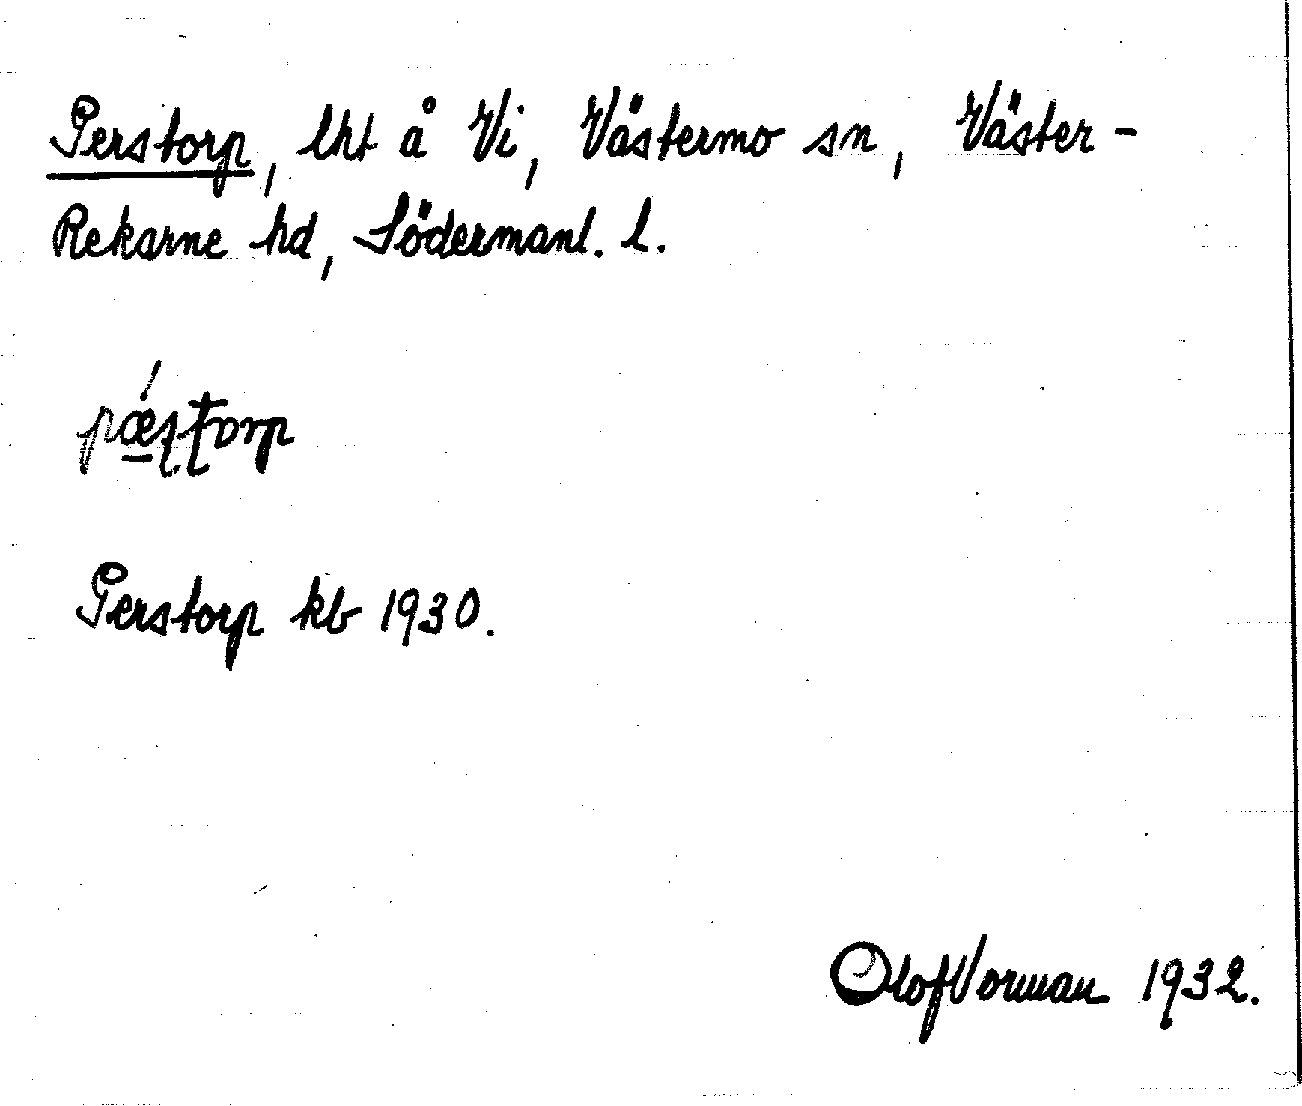 Perstorp, lht å Vi, Västermo sn, Väster-
Rekarne hd, Södermanl. l.
pǽ̲ʂʈorp
Perstorp kb 1930.
Olof Vorman 1932.